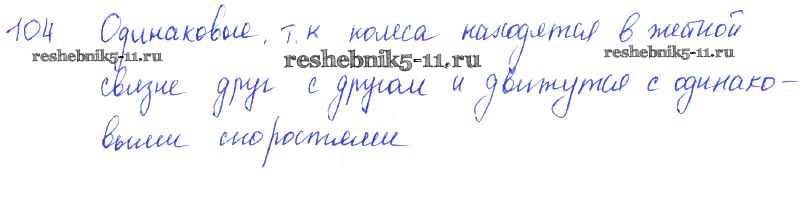 104 Одинаковые, т.к колеса находятся в жесткой
reshebnik5-11.ru reshebnik5-11.ru reshebnik5-11.ru
связке друг с другом и движутся с одинако-
выми скоростями